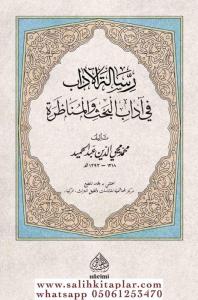 رسالة الآداب
في آداب البحث والمناظرة
تأليف
محمد محيي الدين عبد الحميد
١٣١٨ - ١٣٩٣ هـ
www.salihkitaplar.com
whatsapp 05061253470